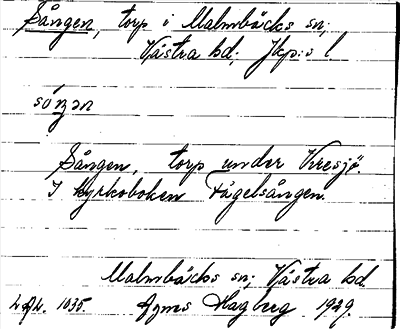 Sången, torp i Malmbäcks sn;
Västra hd; Jkp:s l.
såŋən
Sången, torp under Kresjö.
I kyrkoboken Fågelsången.
Malmbäcks sn; Västra hd.
1035. Agnes Hagberg 1929.